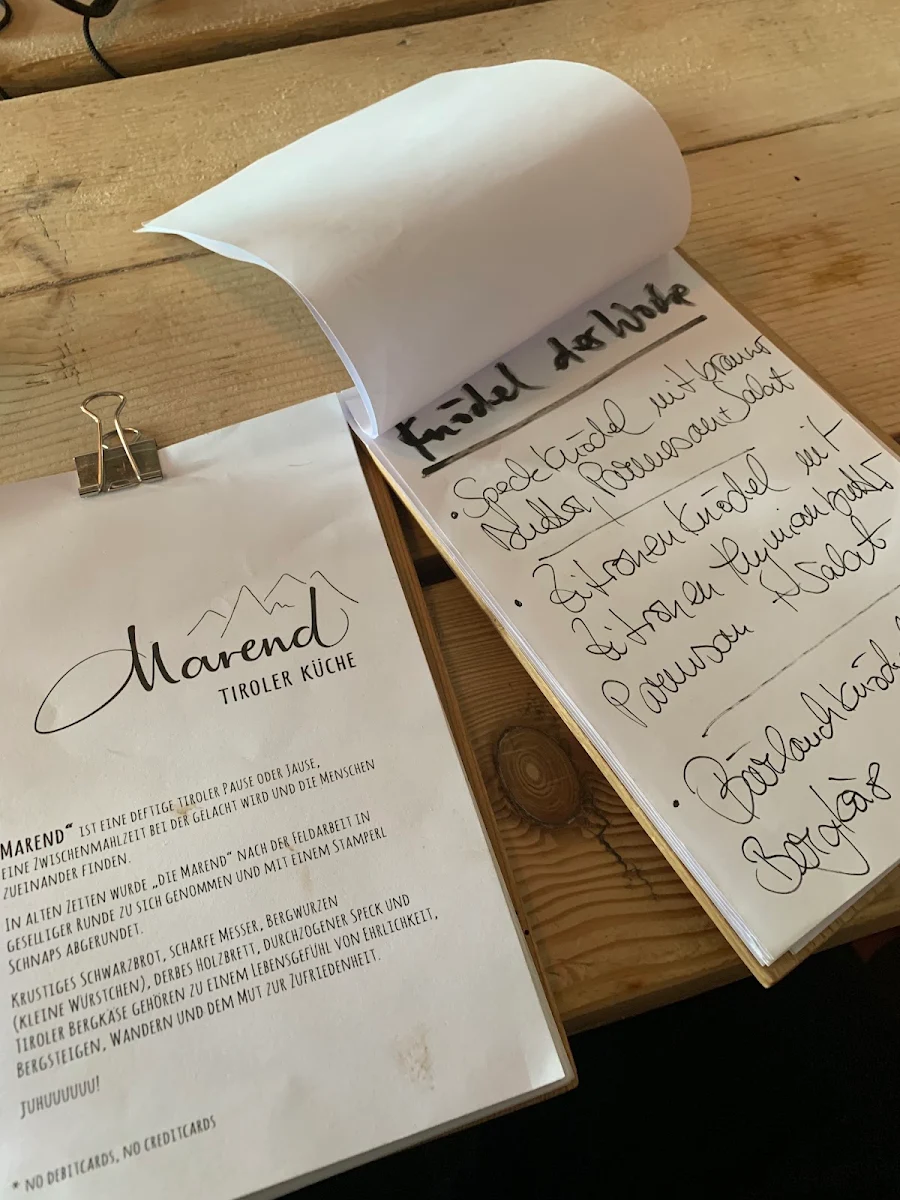 Marend
TIROLER KÜCHE
MAREND“ IST EINE DEFTIGE TIROLER PAUSE ODER JAUSE,
EINE ZWISCHENMAHLZEIT BEI DER GELACHT WIRD UND DIE MENSCHEN
ZUEINANDER FINDEN.
IN ALTEN ZEITEN WURDE „DIE MAREND“ NACH DER FELDARBEIT IN
GESELLIGER RUNDE ZU SICH GENOMMEN UND MIT EINEM STAMPERL
SCHNAPS ABGERUNDET.
KRUSTIGES SCHWARZBROT, SCHARFE MESSER, BERGWURZEN
(KLEINE WÜRSTCHEN), DERBES HOLZBRETT, DURCHZOGENER SPECK UND
TIROLER BERGKÄSE GEHÖREN ZU EINEM LEBENSGEFÜHL VON EHRLICHKEIT,
BERGSTEIGEN, WANDERN UND DEM MUT ZUR ZUFRIEDENHEIT.
JUHUUUUUU!
* NO DEBITCARDS, NO CREDITCARDS
Knödel der Woche
• Speckknödel mit brauner
Butter, Parmesan + Salat
• Zitronenknödel mit
Zitronen thymianbutter
Parmesan + Salat
• Bärlauchknödel
Bergkäs